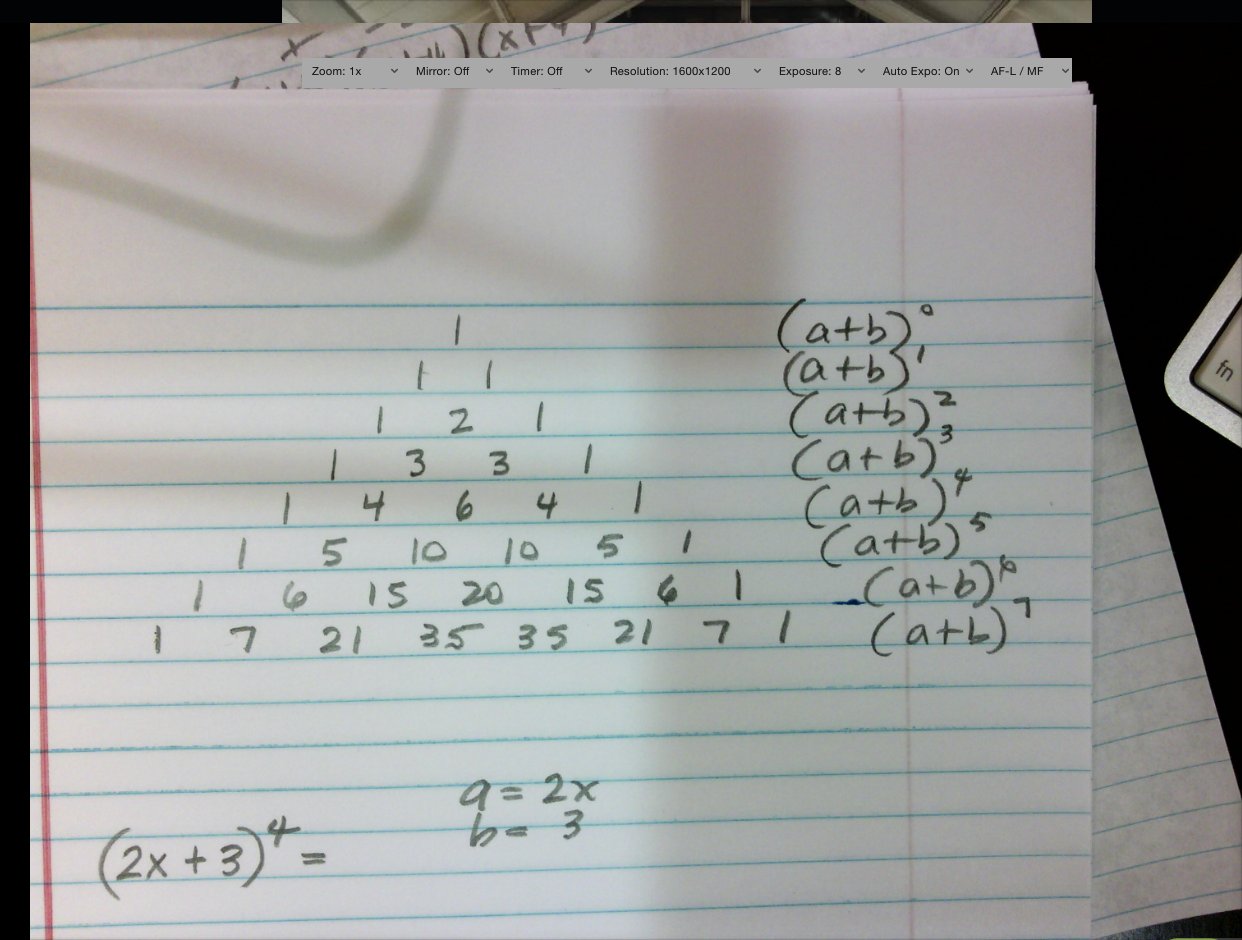 )(x+4)
Zoom: 1x Mirror: Off Timer: Off Resolution: 1600x1200 Exposure: 8 Auto Expo: On AF-L / MF
1 (a+b)⁰
1 1 (a+b)¹
1 2 1 (a+b)²
1 3 3 1 (a+b)³
1 4 6 4 1 (a+b)⁴
fn
1 5 10 10 5 1 (a+b)⁵
1 6 15 20 15 6 1 (a+b)⁶
1 7 21 35 35 21 7 1 (a+b)⁷
a = 2x
b = 3
(2x + 3)⁴ =